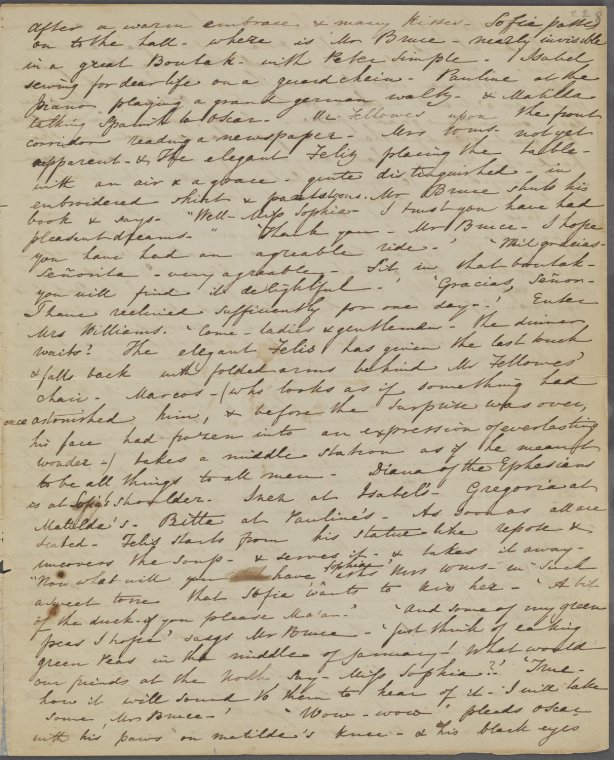 after a warm embrace & many kisses - Sofia passes
on to the hall - where is Mr Bruce - nearly invisible
in a great Boutak - with Peter Simple - Isabel
sewing for dear life on a guard chain - Pauline at the
piano playing a grand german waltz - & Matilda
talking Spanish to Oscar - Mr Fellowes upon the front
corridor reading a newspaper - Mrs Wms - not yet
apparent - & the elegant Felix placing the table -
with an air & a grace - quite distinguished - in
embroidered shirt & pantalyons. Mr Bruce shuts his
book & says - "Well - Miss Sophia - I trust you have had
pleasant dreams - " "Thank you - Mr Bruce - I hope
you have had an agreable ride - ' "Mil gracias -
Señorita - very agreably - Sit in that boutak -
you will find it delightful - ' 'Gracias, Señor -
I have reclined sufficiently for one day - ' Enter
Mrs Williams. "Come - ladies & gentlemen - the dinner
waits! The elegant Felix has given the last touch
& falls back with folded arms behind Mr Fellowes'
chair - Marcos - (who looks as if something had
once astonished him, & before the surprise was over,
his face had frozen into an expression of everlasting
wonder -) takes a middle station as if he meant
to be all things to all men - Diana of the Ephesians
is at Sofia's shoulder - Inez at Isabel's - Gregoria at
Matilda's - Britta at Pauline's - As soon as all are
seated - Felix starts from his statue like repose &
uncovers the soup - & serves it - & takes it away -
"Now what will you have, Sophia" asks Mrs Wms - in such
a sweet tone that Sofia wants to kiss her - "A bit
of the duck - if you please Ma'am - " "And some of my green
peas I hope" says Mr Bruce - "just think of eating
green peas in the middle of January! What would
our friends at the North say - Miss Sophia?" "True -
how it will sound to them to hear of it - I will take
some, Mr Bruce - ' "Wow - wow" pleads Oscar
with his paws on Matilda's knee - & his black eyes